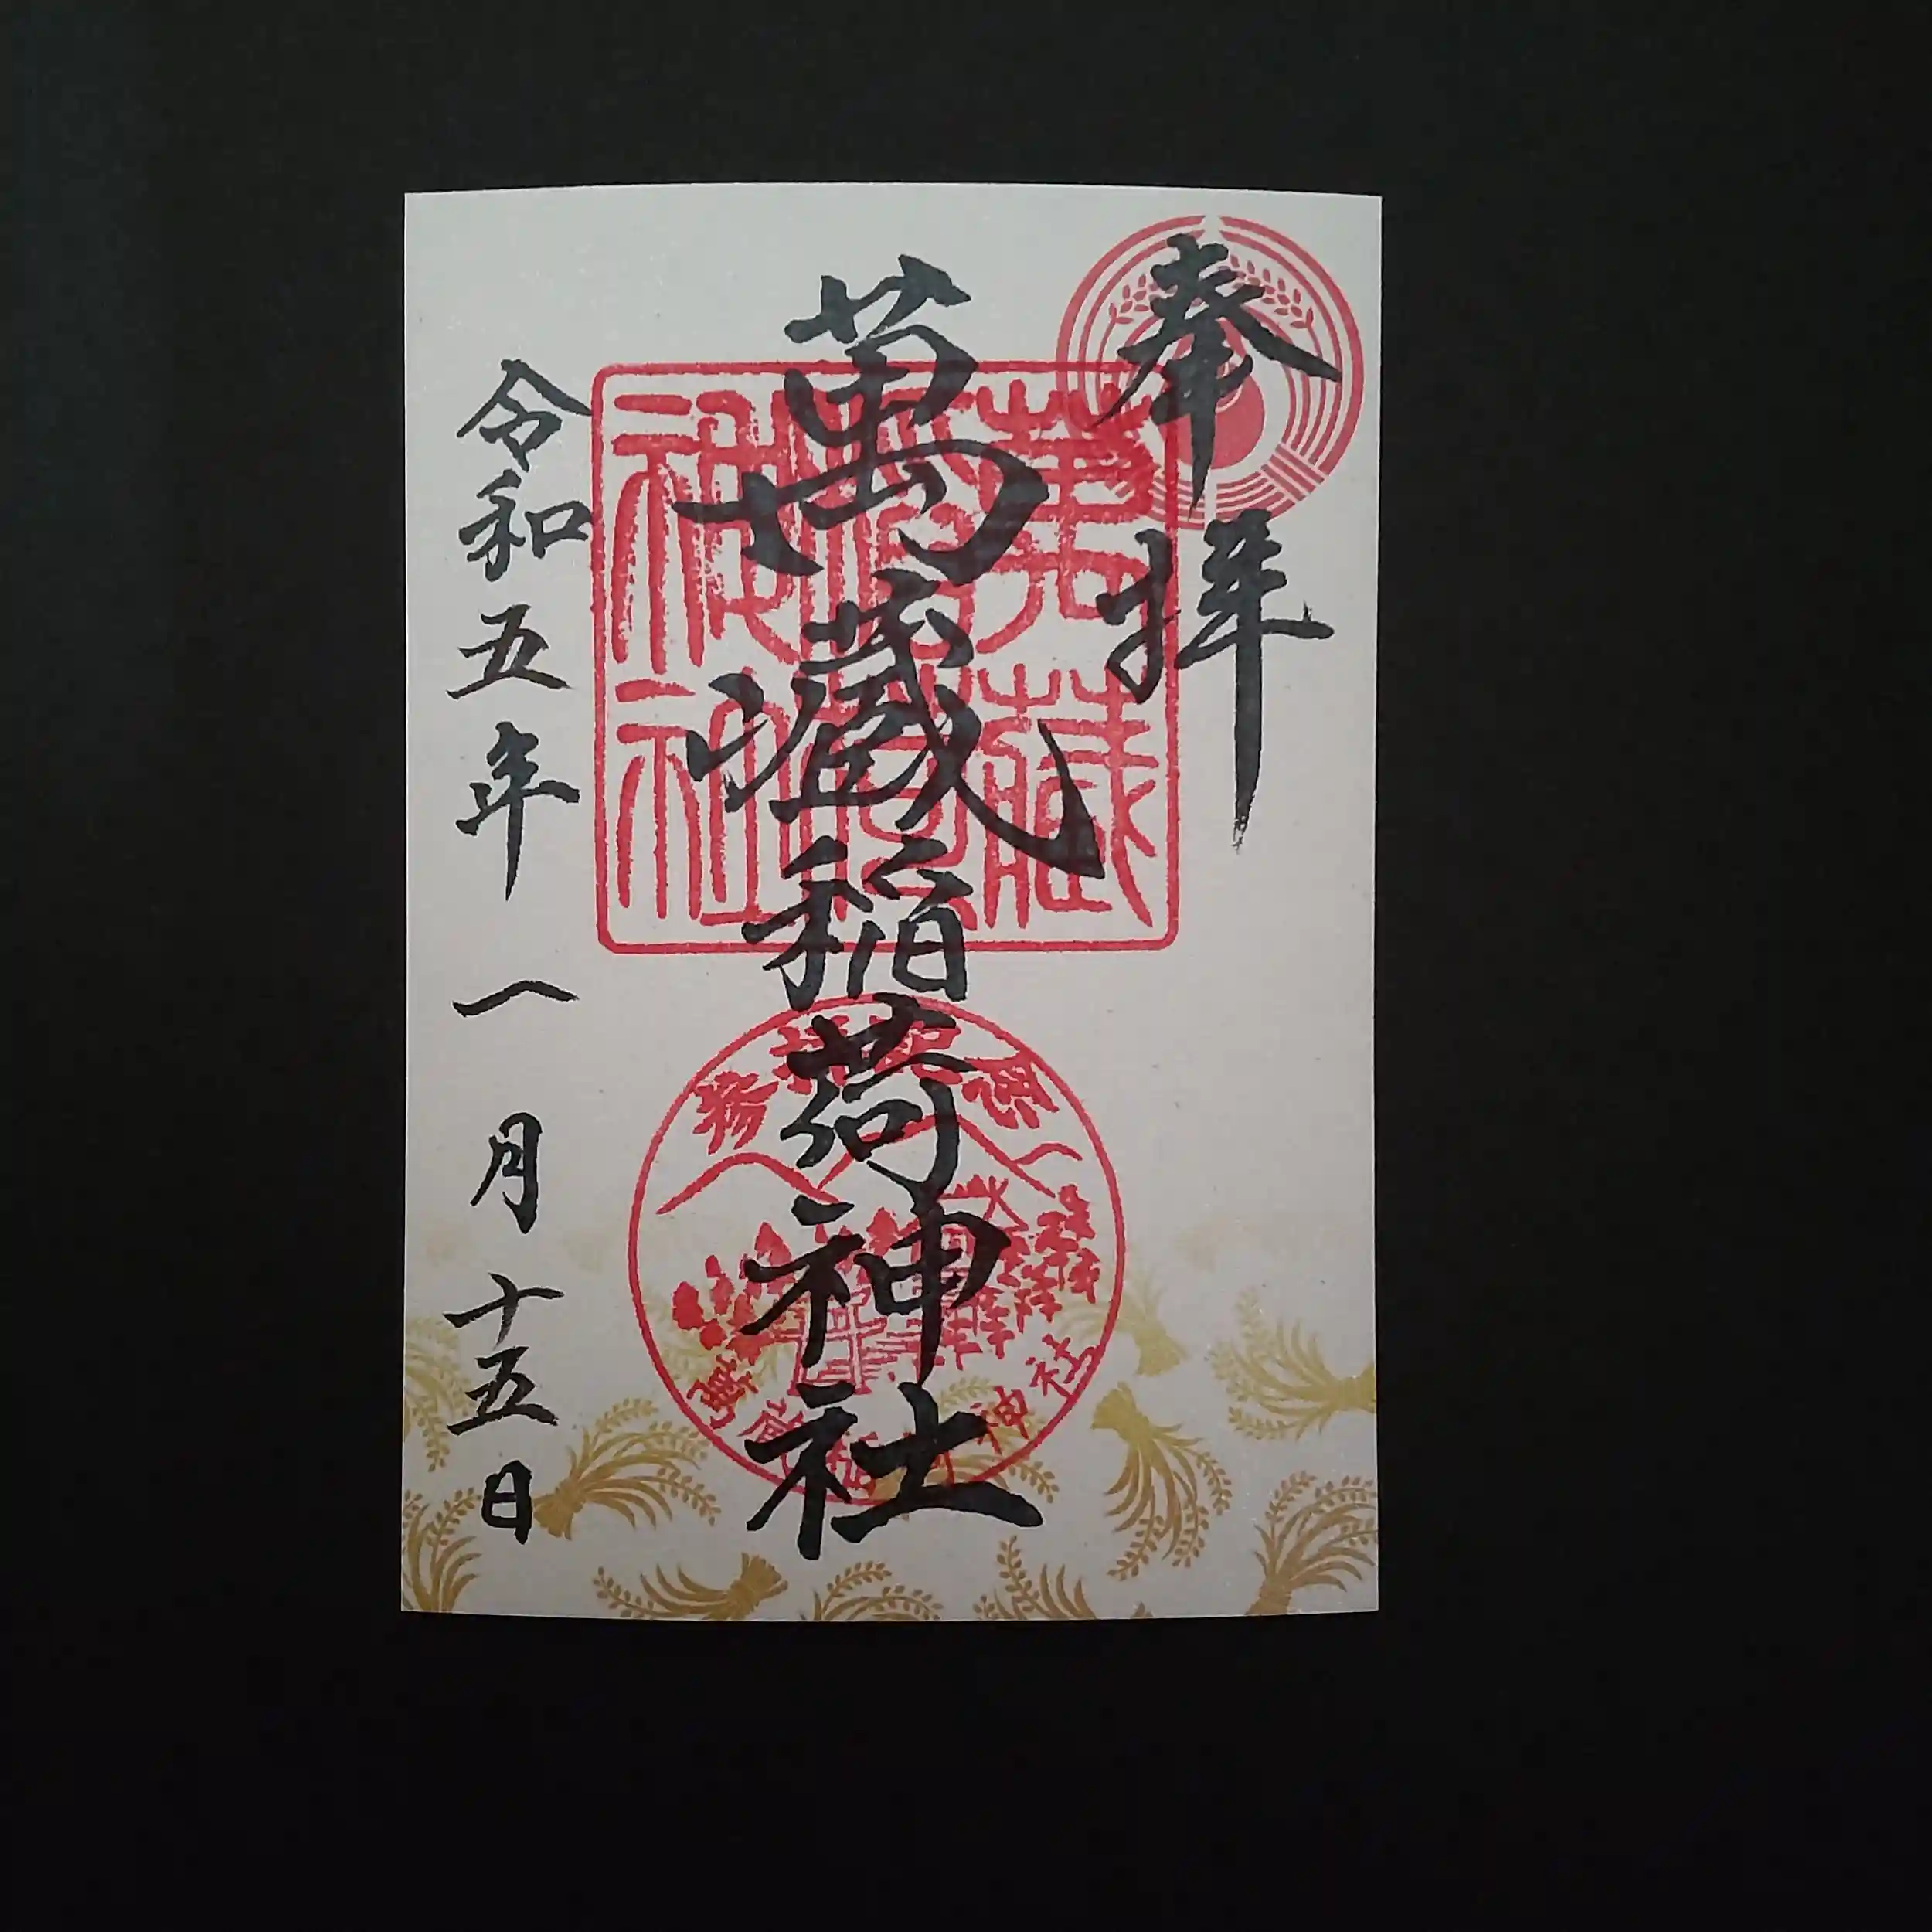 奉拝
萬蔵稲荷神社
令和五年一月十五日
萬藏
稲荷
神社
神社